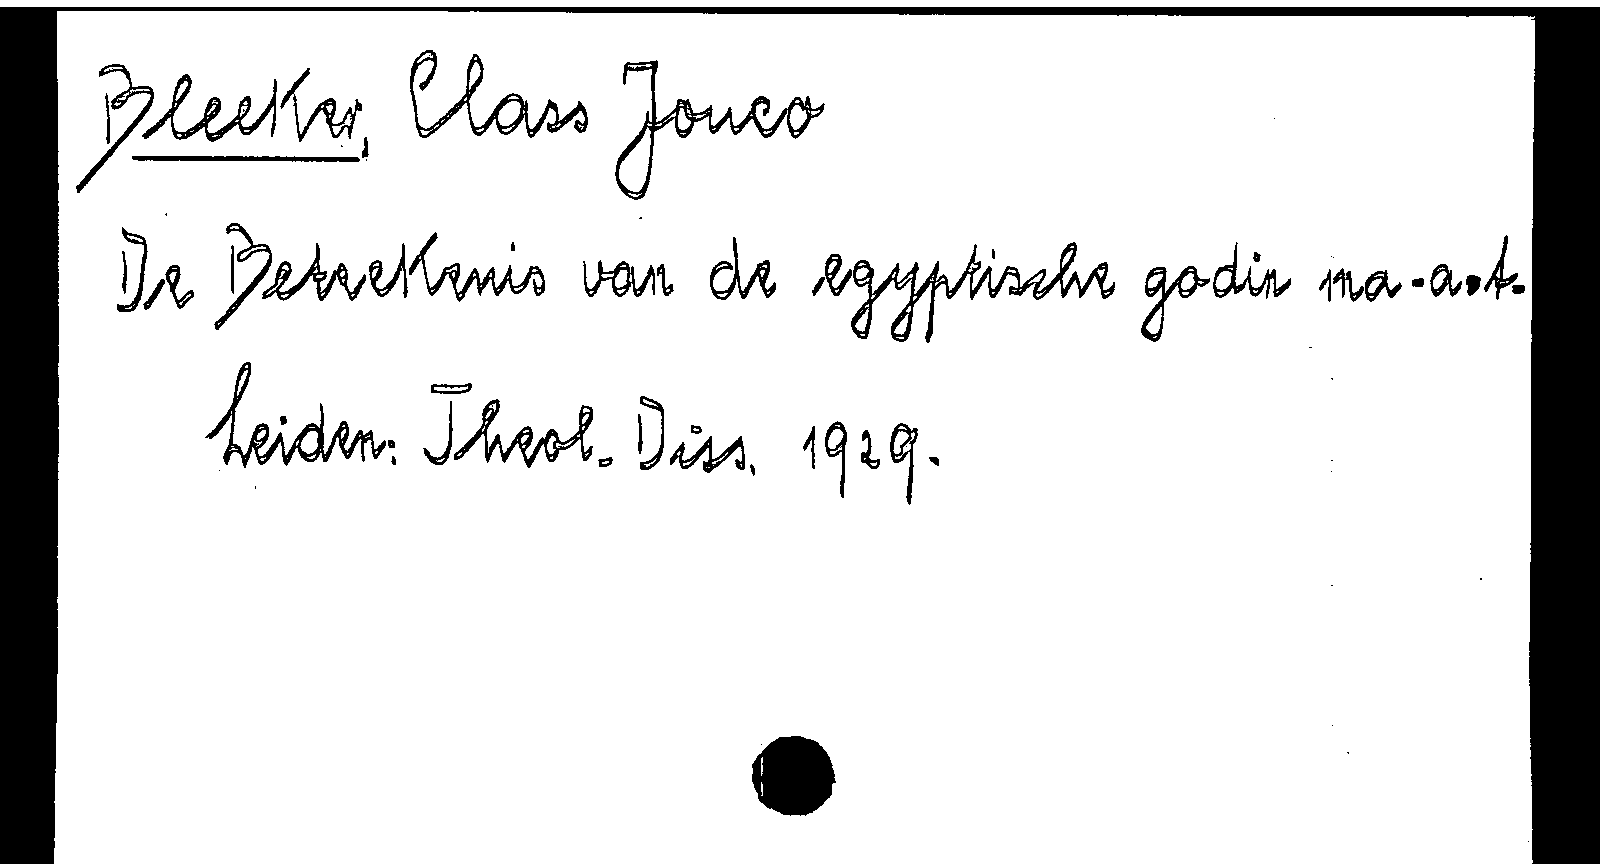 Bleeker, Class Jouco
De Beteekenis van de egyptische godin ma-a-t.
Leiden: Theol. Diss. 1929.